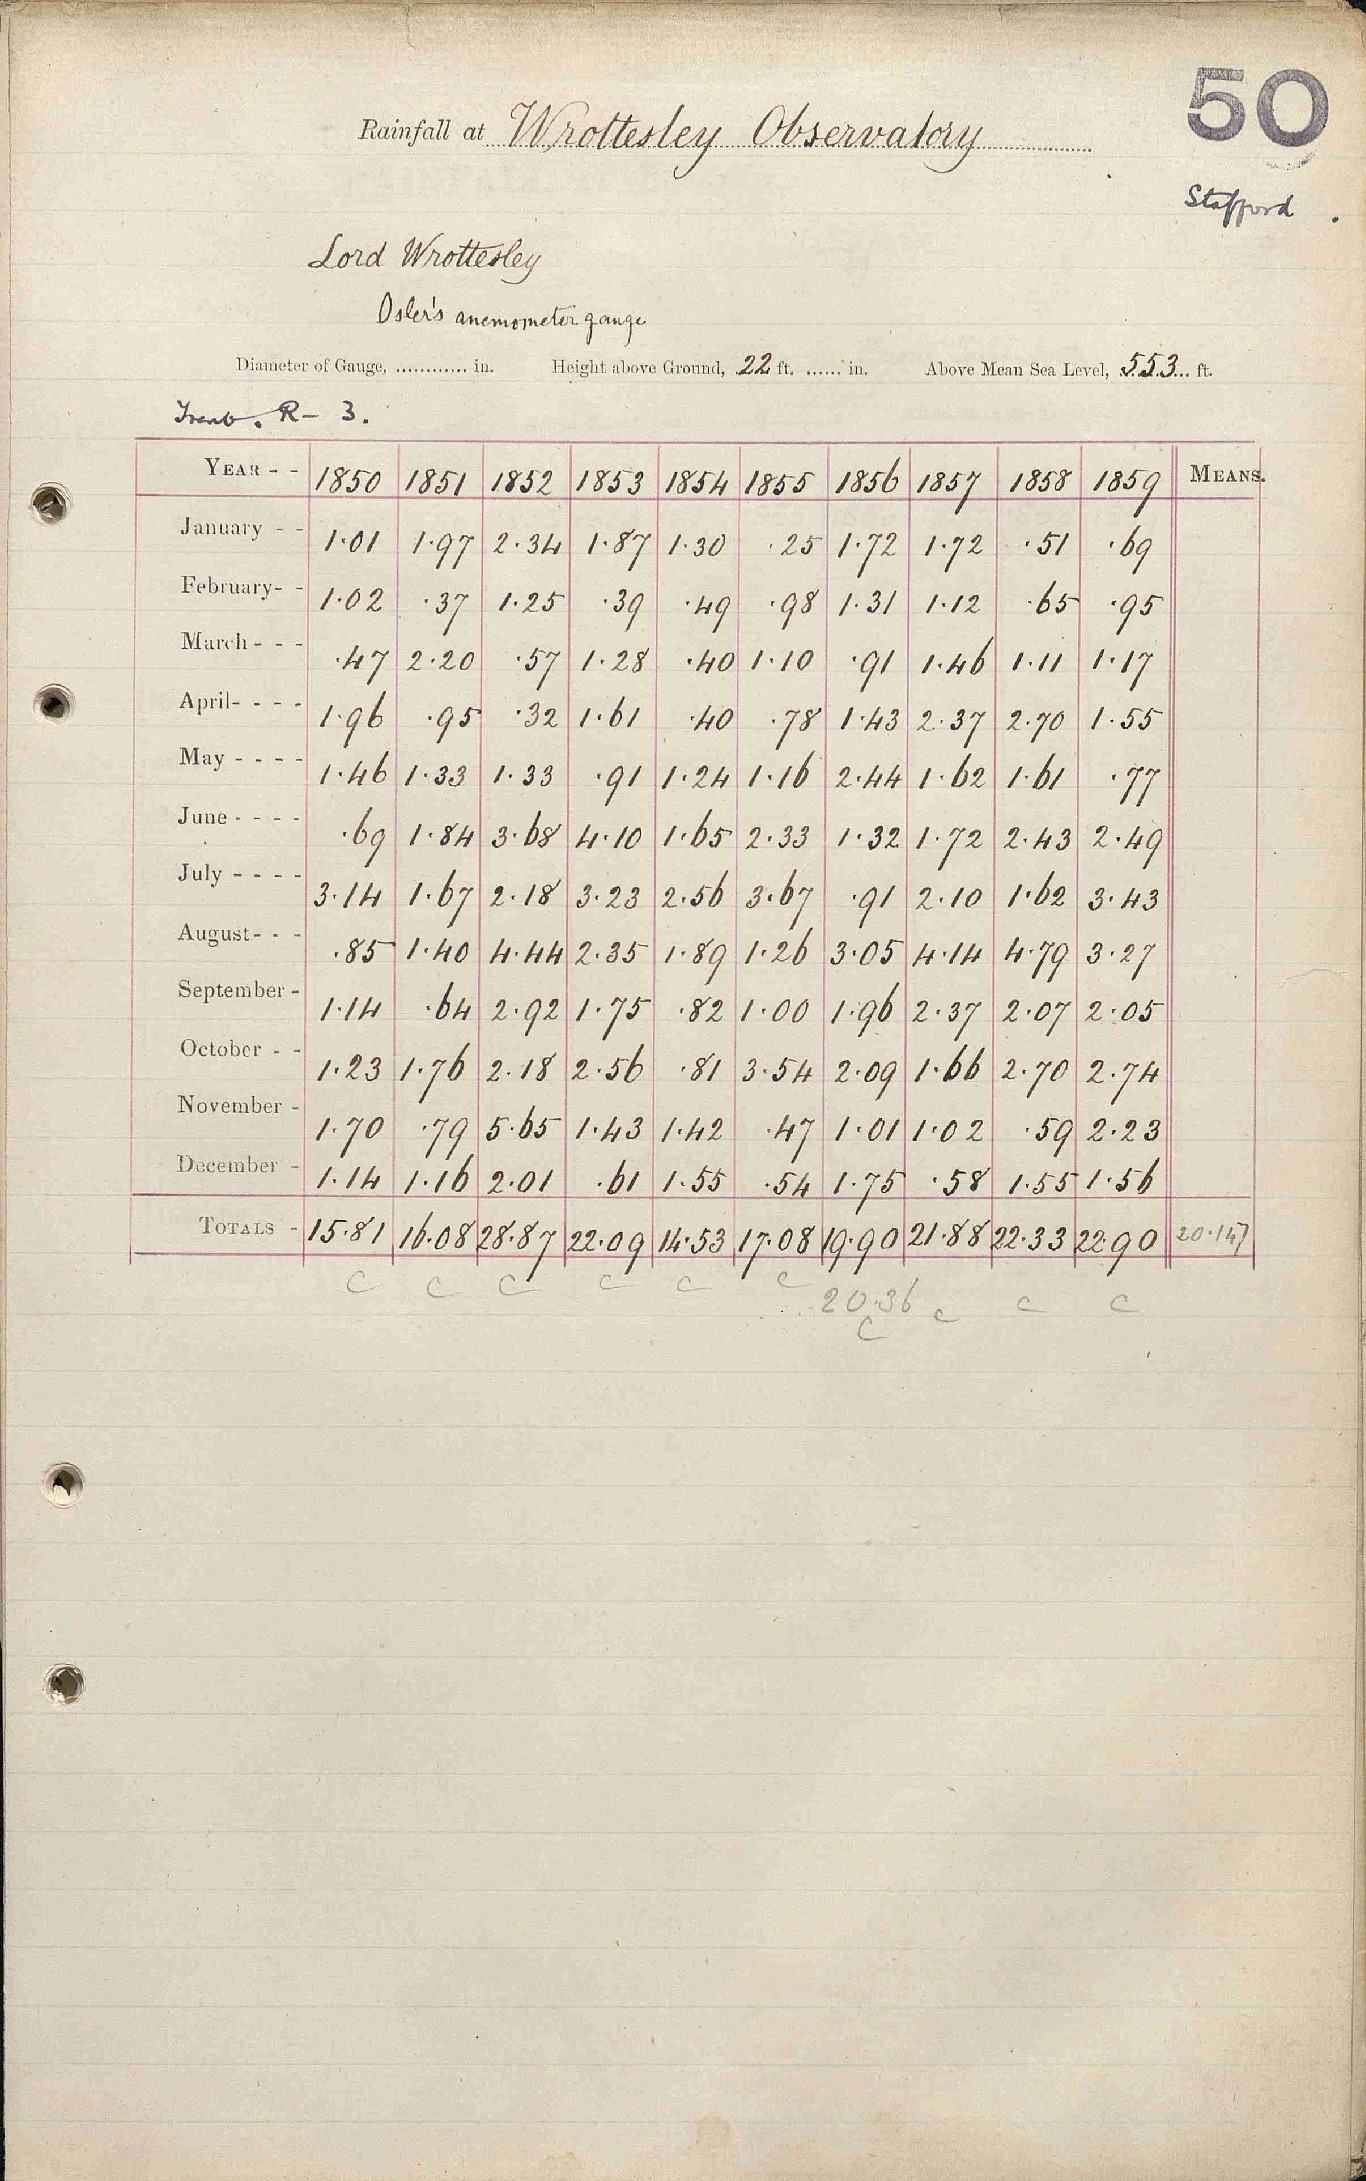 50
Rainfall at Wrottesley Observatory
Stafford.
Lord Wrottesley
Osler's anemometer gauge
Diameter of Gauge, ............ in. Height above Ground, 22 ft. ...... in. Above Mean Sea Level, 553 ft.
Trent. R- 3.
YEAR - - 1850 1851 1852 1853 1854 1855 1856 1857 1858 1859 MEANS.
January - - 1.01 1.97 2.34 1.87 1.30 .25 1.72 1.72 .51 .69
February- - 1.02 .37 1.25 .39 .49 .98 1.31 1.12 .65 .95
March - - - .47 2.20 .57 1.28 .40 1.10 .91 1.46 1.11 1.17
April- - - - 1.96 .95 .32 1.61 .40 .78 1.43 2.37 2.70 1.55
May - - - - 1.46 1.33 1.33 .91 1.24 1.16 2.44 1.62 1.61 .77
June - - - - .69 1.84 3.68 4.10 1.65 2.33 1.32 1.72 2.43 2.49
July - - - - 3.14 1.67 2.18 3.23 2.56 3.67 .91 2.10 1.62 3.43
August- - - .85 1.40 4.44 2.35 1.89 1.26 3.05 4.14 4.79 3.27
September - 1.14 .64 2.92 1.75 .82 1.00 1.96 2.37 2.07 2.05
October - - 1.23 1.76 2.18 2.56 .81 3.54 2.09 1.66 2.70 2.74
November - 1.70 .79 5.65 1.43 1.42 .47 1.01 1.02 .59 2.23
December - 1.14 1.16 2.01 .61 1.55 .54 1.75 .58 1.55 1.56
TOTALS - 15.81 16.08 28.87 22.09 14.53 17.08 19.90 21.88 22.33 22.90 20.147
c c c c c c 20.36 c c c
c